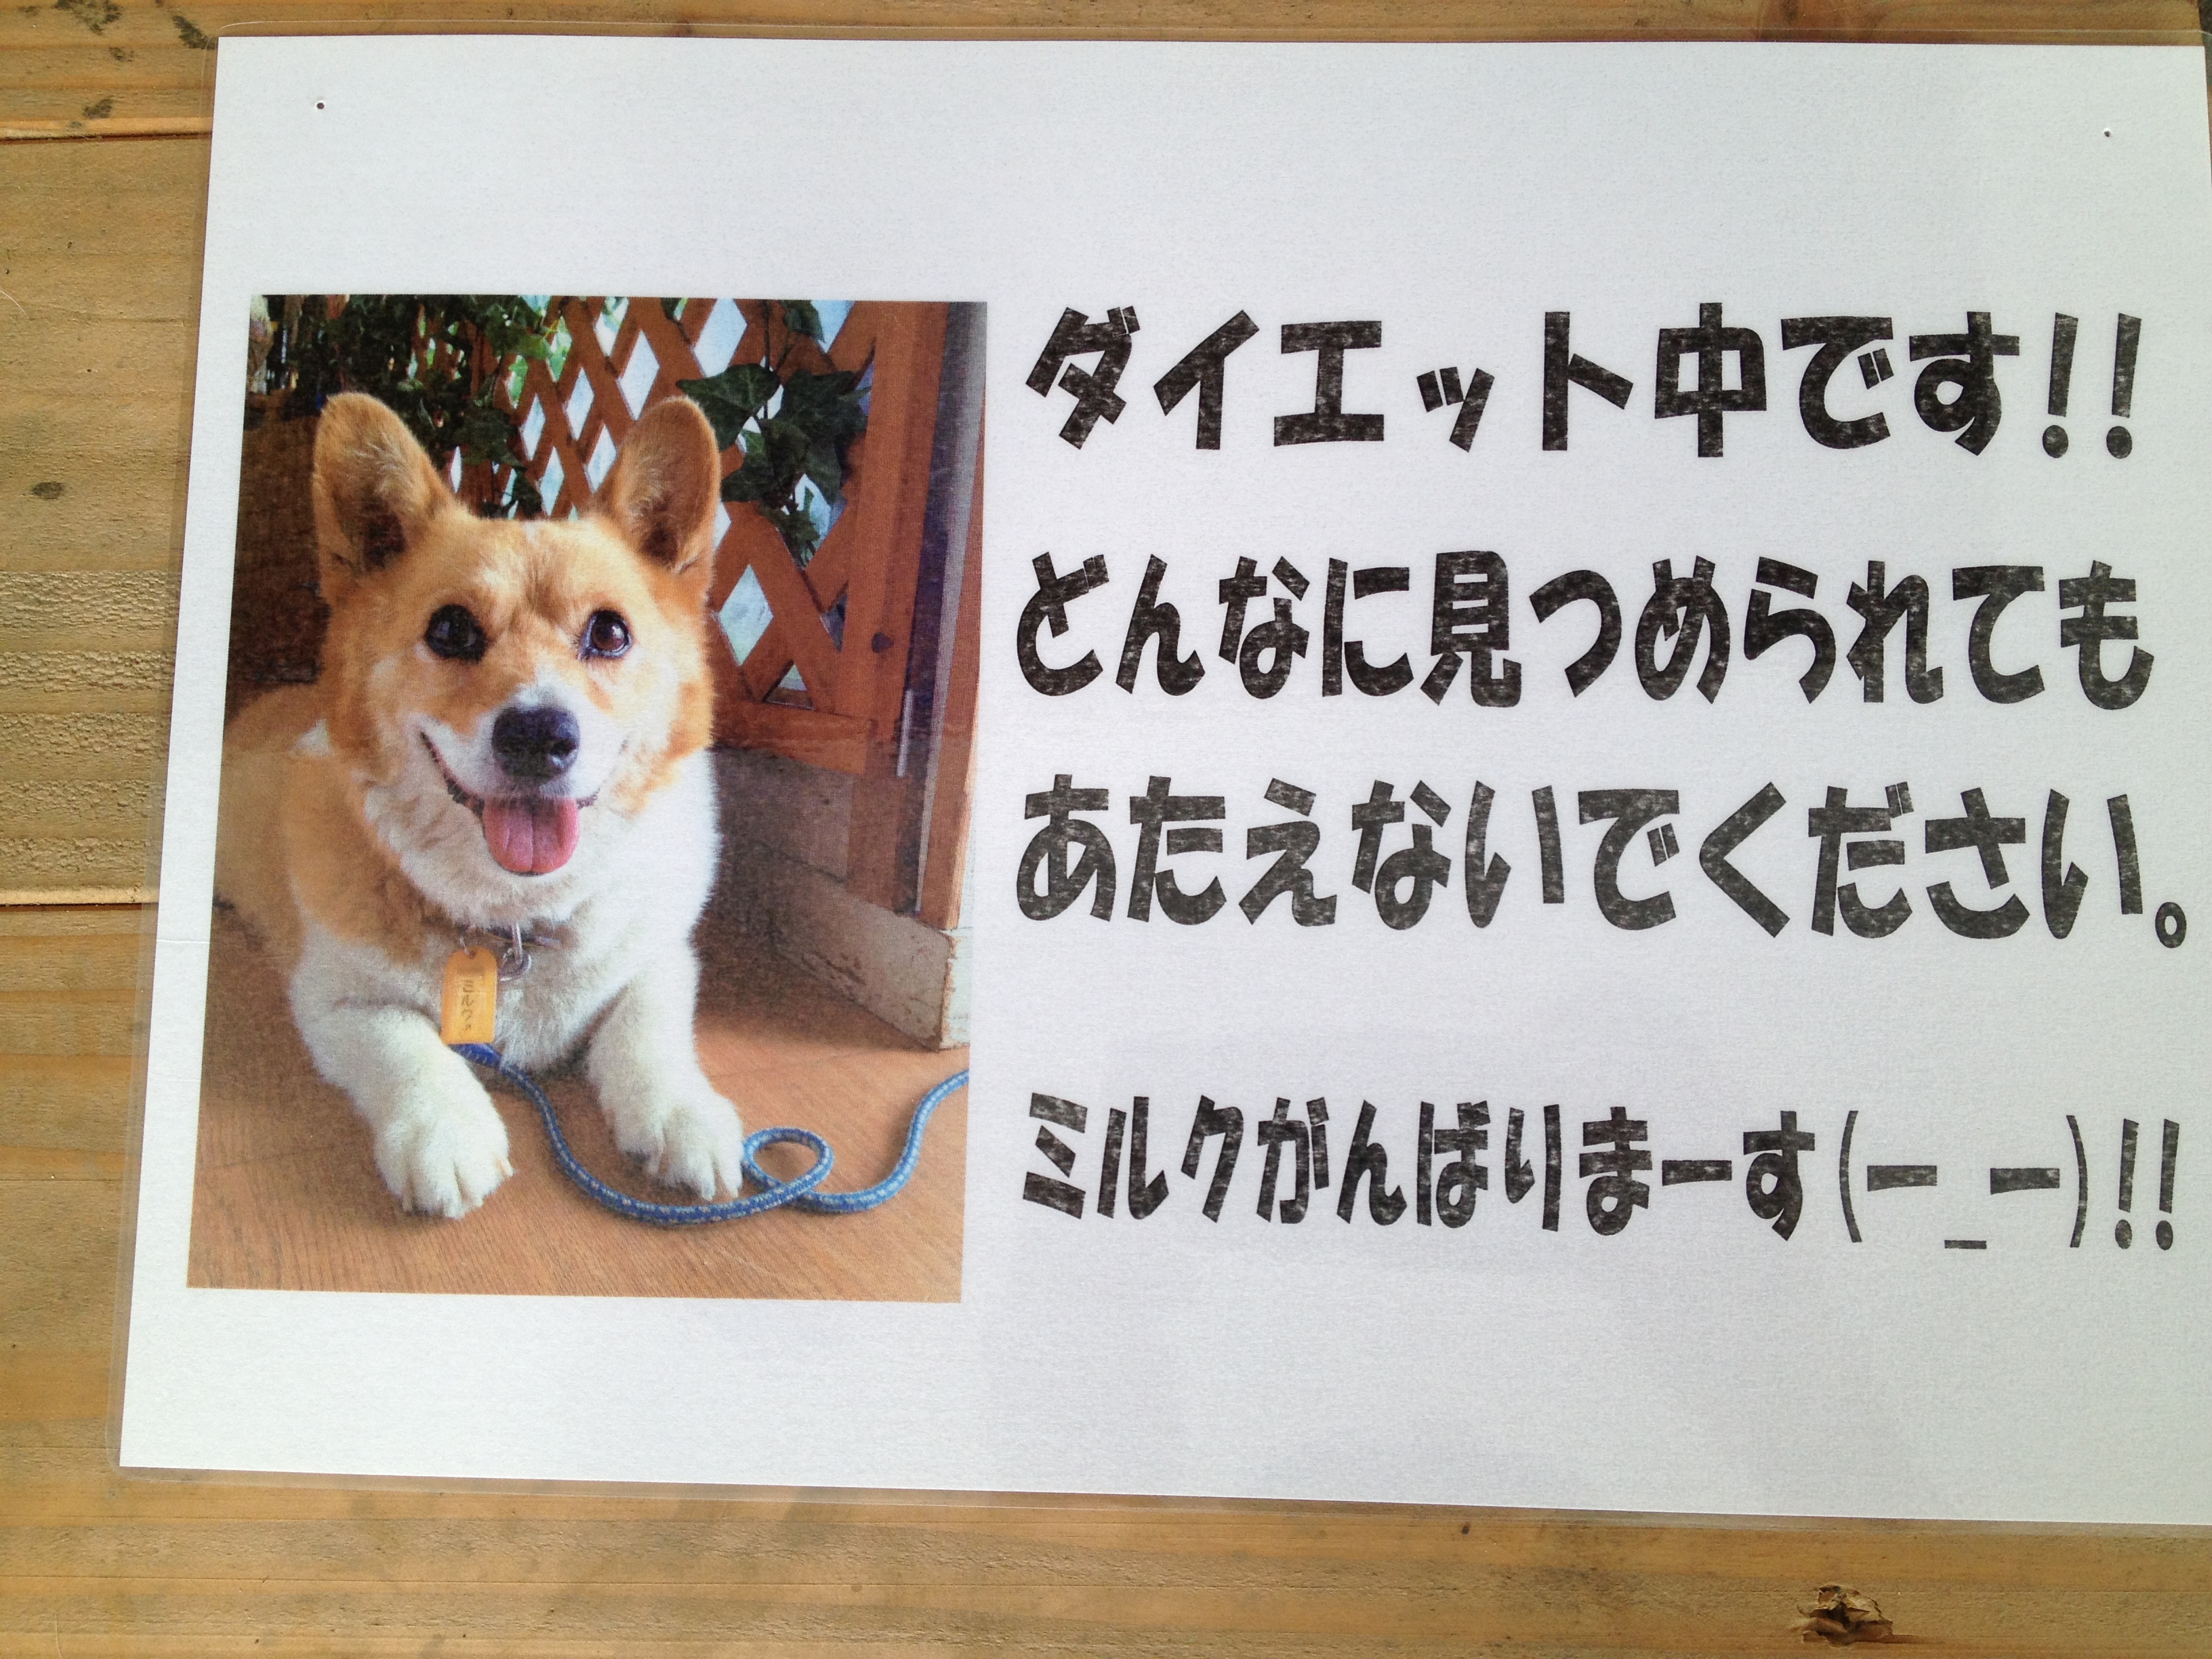 ダイエット中です!!
どんなに見つめられても
あたえないでください。
ミルクがんばりまーす(ー_ー)!!
ミルク